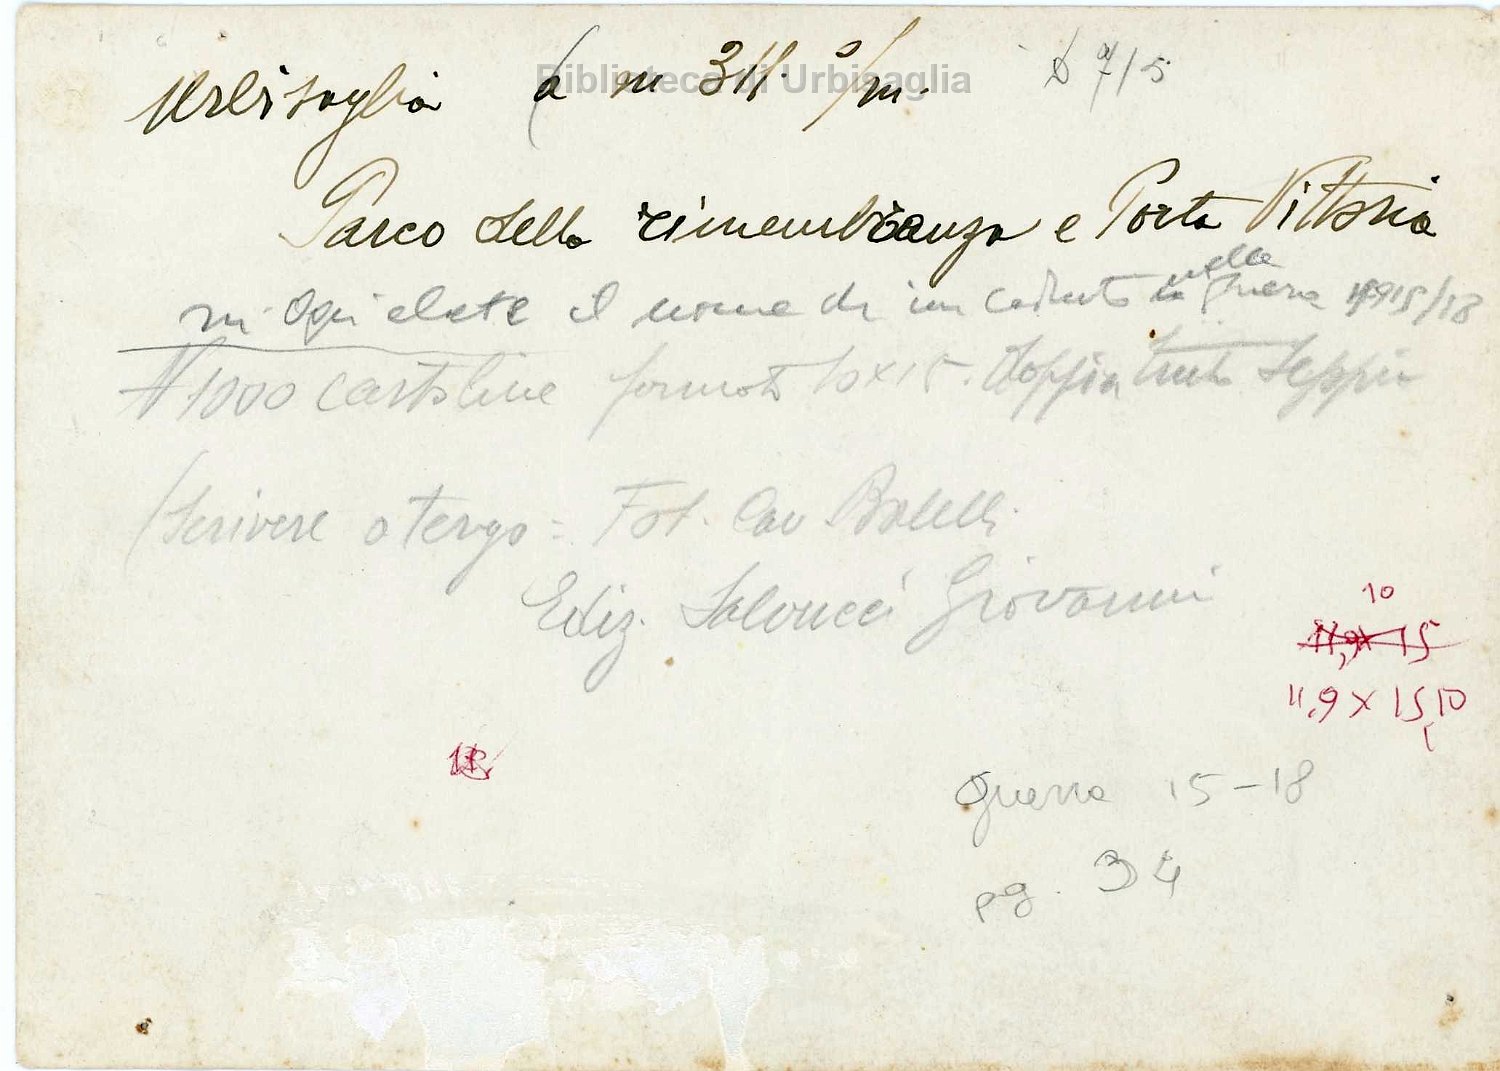 Urbisaglia (a m 311. s/m. D 7/5
Biblioteca di Urbisaglia
Parco della rimembranza e Porta Vittoria
nella
in ogni elce il nome di un caduto in guerra 1915/18
N 1000 cartoline formato 10x15. doppia tinta Seppia
(Scrivere a tergo = Fot. Cav. Balelli.
Ediz. Salvucci Giovanni
10
11,9x15
11,9 x 15,10
guerra 15-18
pg. 34